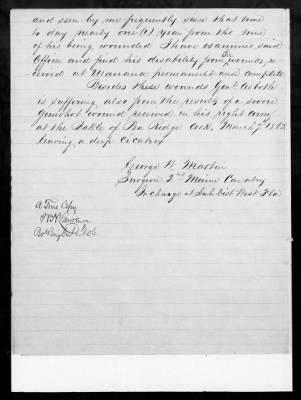 and seen by me frequently since that time
to day nearly one (1) year from the time
of his being wounded I have examined said
Officer and find his disability from the wounds re
ceived at Mariana permanent and complete
Besides these wounds Genl Asboth
is suffering also from the results of a severe
gunshot wound received in his right arm
at the Battle of Pea Ridge Ark. March 7th 1862
leaving a deep cicatrix
George W. Martin
Surgeon 2nd Maine Cavalry
In charge at Sub Dist West Fla
A True Copy